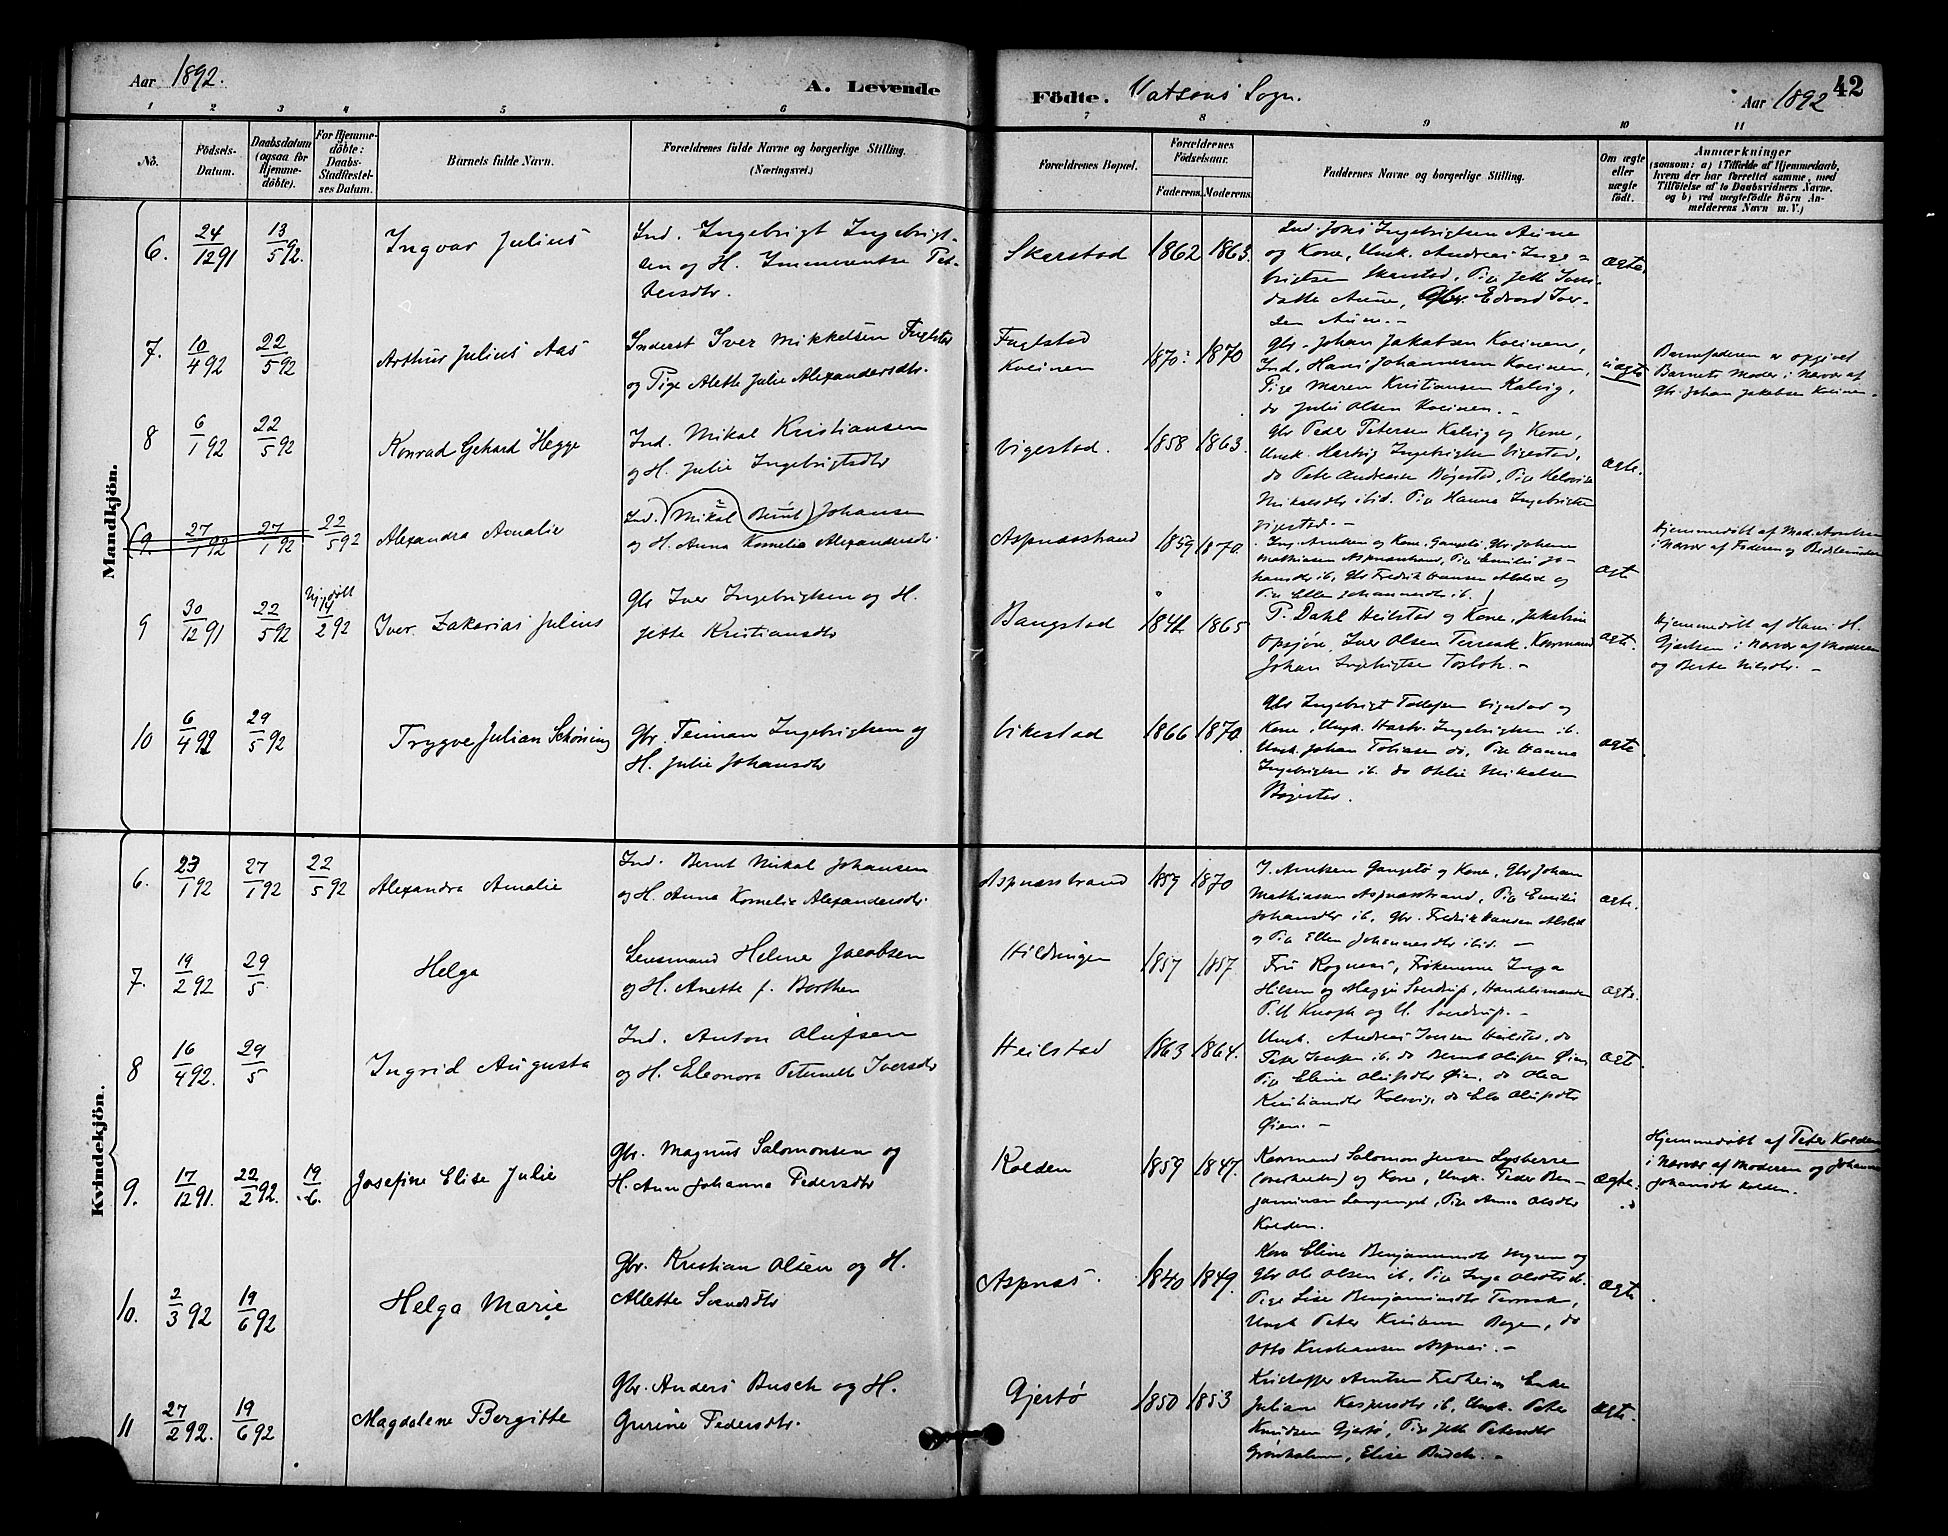 Aar 1892.
A. Levende
Födte. Vatsous Sogn.
Aar 1892
42
1 2 3 4 5 6 7 8 9 10 11
No.
Födsels-
Datum.
Daabsdatum
(ogsaa for
Hjemme-
döbte).
For Hjemme-
döbte:
Daabs-
Stadfæstel-
ses Datum.
Barnets fulde Navn.
Forældrenes fulde Navne og borgerlige Stilling.
(Næringsvei.)
Forældrenes Bopæl.
Forældrenes
Födselsaar.
Faderens. Moderens.
Faddernes Navne og borgerlige Stilling.
Om ægte
eller
uægte
födt.
Anmærkninger
(saasom: a) i Tilfælde af Hjemmedaab,
hvem der har forrettet samme, med
Tilföielse af to Daabsvidners Navne.
og b) ved uægtefödte Börn An-
melderens Navn m. V.)
Mandkjön.
6. 24/12 91 13/5 92. Ingvar Julius
Ind. Ingebrigt Ingebrigt-
sen og H. Immerentse Pet-
tersdtr.
Skarstad 1862 1863.
Ind. Johs Ingebrigtsen Aune
og Kone, Ungk. Andreas Inge-
brigtsen Skarstad, Pige Jette Ivers-
datter Aune, Gbr. Edvard Iver-
sen Aune. -
ægte.
7. 10/4 92 22/5 92 Arthur Julius Aas
Inderst Iver Mikkelsen Fuglstad
og Pige Alette Julie Alexandersdtr.
Fuglstad
Kveinen
1870: 1870
Gbr. Johan Jakobsen Kveinen,
Ind. Hans Johannesen Kveinen,
Pige Maren Kristiansen Kalvig,
do Julie Olsen Kveinen. -
uægte
Barnefaderen er opgivet
Barnets Moder i Nærvær af
Gbr. Johan Jakobsen Kveinen.
8 6/1 92 22/5 92 Konrad Gehard Hegge
Ind. Mikal Kristiansen
og H. Julie Ingebrigtsdtr
Vigestad. 1858 1863.
Gbr Peder Petersen Kalvig og Kone,
Ungk. Hartvig Ingebrigtsen Vigestad,
do Peter Andreasen Bøgestad, Pige
Mikalsdtr ibid. Pige Hanna Ingebrigtsen
Vigestad. -
ægte.
9. 27/1 92 27/1 92 22/5 92 Alexandra Amalie
Ind. Mikal Bernt Johansen
og H. Anna Kornelia Alexandersdtr
Aspnæsstrand 1859 1870.
Arntsen og Kone, Gangstø, Gbr. Johan
Mathiassen Aspnæsstrand, Pige Emilie Jo-
hansdtr ib, Gbr Fredrik Hansen Alstad og
Pige Ellen Johannesdtr ib.
ægte
Hjemmedøbt af Mad. Arntsen
i Nærvær af Faderen og
9 30/12 91 22/5 92 Hj. døbt 14/2 92 Iver Zakarias Julius
Gbr Iver Ingebrigtsen og H.
Jette Kristiansdtr
Bangstad 1842 1865
P. Dahl Heilstad og Kone, Jakobine
Opsjøn, Iver Olsen Terraak, Kaarmand
Johan Ingebrigtsen -
ægte.
Hjemmedøbt af Hans H.
Gjertsen i Nærvær af Moderen
og Berte Nilsdtr. -
10 6/4 92 29/5 92 Trygve Julian Schøning
Gbr. Teiman Ingebrigtsen og
H. Julie Johansdtr
Vikestad 1866 1870.
Gbr Ingebrigt Tollefsen Vigestad og
Kone, Ungk. Hartv. Ingebrigtsen ib.
Ungk. Johan Tobiasen do, Pige Hanna
Ingebrigtsen ib. do Otelie Mikalsen
Bøgestad.
ægte.
Kvindekjön.
6. 23/1 92 27/1 92 22/5 92 Alexandra Amalie
Ind. Bernt Mikal Johansen
og H. Anna Kornelia Alexandersdtr.
Aspnæsstrand 1859 1870
J. Arntsen Gangstø og Kone, Gbr Johan
Mathiassen Aspnæsstrand, Pige Emilie
Johansdtr ib, Gbr. Fredrik Hansen Alstad
og Pige Ellen Johannesdtr ibid. -
ægte.
7. 19/2 92 29/5 Helga
Lensmand Helmer Jacobsen
og H. Anette f. Borthen
Hildringen 1857 1857
Fru Rognaas, Frøknerne Inga
Nilsen og Magga Sverdrup, Handelsmanden
P. M Knoph og U. Sverdrup. -
ægte.
8 16/4 92. 29/5 Ingrid Augusta
Ind. Anton Olufsen
og H. Eleonora Petrine Iversdtr
Heilstad 1863 1864.
Ungk. Andreas Iversen Heilstad, do
Peter Iversen ib. do Bernt Olufsen Øien
Pige Eline Olufsdtr Øien, do Olea
Kristiansdtr Kalvvig, do Els Olufsdtr
Øien. -
ægte
9. 17/12 91. 22/2 92. 19/6. Josefine Elise Julie
Gbr. Magnus Salomonsen og
H. Ann Johanna Pedersdtr
Kolden 1859 1847.
Kaarmand Salomon Jensen
og Kone, Ungk. Peder Ben-
jaminsen Langenget, Pige Anna Olsdtr
Kolden.
ægte.
Hjemmedøbt af Peter Kolden
i Nærvær af Moderen og Johanna
Johansdtr Kolden.
10. 2/3 92 19/6 92 Helga Marie
Gbr. Kristian Olsen og H.
Allette Svendsdtr
Aspnæs. 1840 1849.
Kone Eline Benjaminsdtr og
Gbr Ole Olsen ib, Pige Inga Olsdtr d.
Pige Lise Benjaminsdtr Terraak,
Ungk Peter Kristiansen Bogen, do
Otto Kristiansen Aspnæs. -
ægte
11 27/2 92. 19/6 92 Magdalene Bergitte
Gbr. Anders Busch og H.
Gurine Pedersdtr.
Gjerstø 1850 1853
Kristoffer Arntsen Terheim Enke
Juliane Kaspersdtr ib, Ungk. Peter
Knudsen Gjerstø, Pige Jette Petersdtr
Grønholmen, Elise Busch. -
ægte.